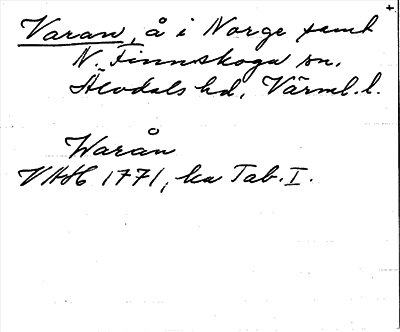 Varan, å i Norge samt
N. Finnskoga sn.
Älvdals hd, Värml. l.
Warån
VAH 1771, ka Tab. I.